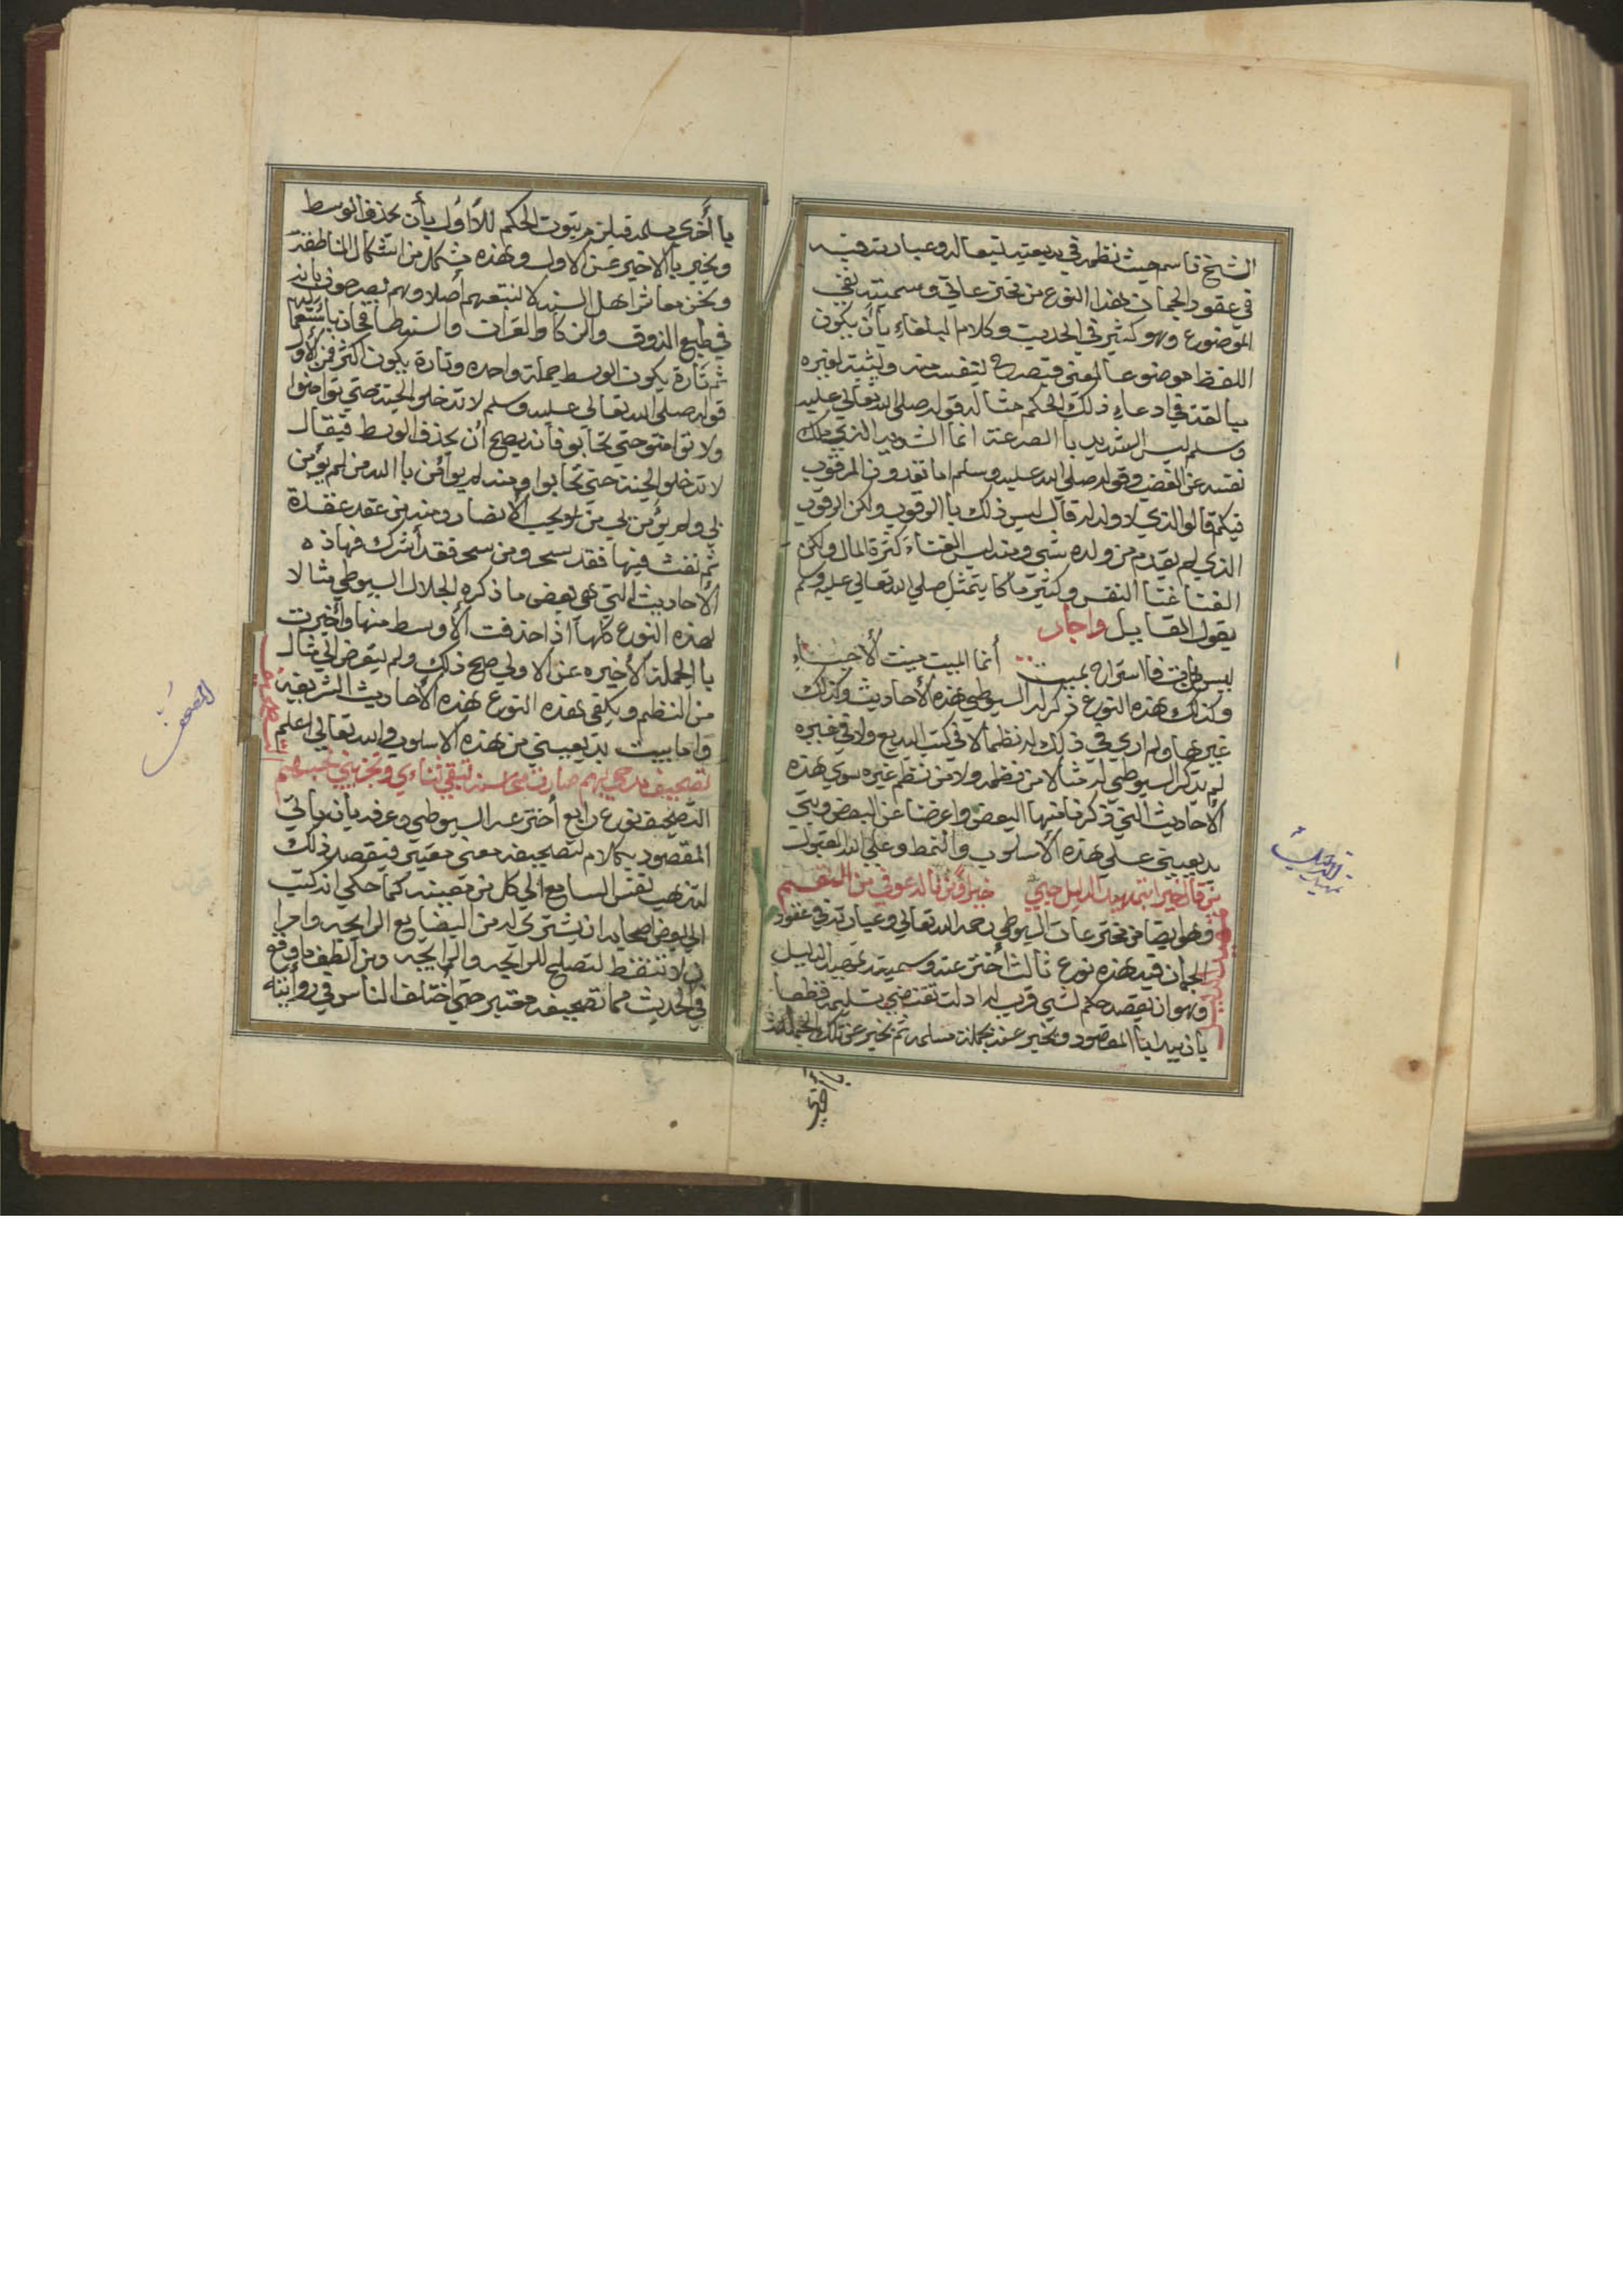 الشيخ قاسم حيث نظمه في بديعيته تبعا له وعبارته فيه
في عقود الجمان هذا النوع من مخترعاتي وسميته نفي
الموضوع وهو كثير في الحديث وكلام البلغاء بأن يكون
اللفظ موضوعا لمعنى فيصرح بنفيه عنه ويثبته لغيره
مبالغة في ادعاء ذلك الحكم مثاله قوله صلى الله تعالى عليه
وسلم ليس الشديد باالصرعة انما الشديد الذي يملك
نفسه عن الغضب وقوله صلى الله عليه وسلم ما تعدون المرقوب
فيكم قالوا الذي لا ولد له قال ليس ذلك باالرقوب ولكن الرقوب
الذي لم يقدم من ولده شي ومنه ليس الغناء كثرة المال ولكن
الغنا غنا النفس وكثير ما كا يتمثل صلى الله تعالى عليه وسلم
بقول القايل واجاد
ليس من مات فااستراح بميت أنما الميت ميت الأحياء
وكذلك هذه النوع ذكر له السيوطي هذه الأحاديث وكذلك
غيرها ولم اري في ذلك له نظما لا في كتب البديع ولا في غيره
لم يذكر السيوطي له مثالا من نظمه ولا من نظم غيره سوى هذه
الأحاديث التي ذكرنا منها البعض واعرضنا عن البعض وبيت
بديعيتي على هذه الأسلوب والنمط وعلى الله القبول
من قال خيرا بتمهيد الدليل حبي خيرا ومن نالد عوفي من النقم
وهو ايضا من مخترعات السيوطي رحمه الله تعالى وعبارته في عقود
الجمان فيه هذه نوع ثالث أخترعته وسميته تمهيد الدليل
وهو ان يقصد حكم لشي فرتب له ادلة تقتضي تسليمه قطعا
يا ذبيدا باالمقصود ويخبر عنه بجملة مسلمه ثم يخبر عن تلك الجملة
باأخرى
باأخرى مسلمه فيلزم ثبوت الحكم للأول بأن يحذف الوسط
ويخبر باالاخير عن الاول وهذه شكل من اشكال المناطقة
ونحن معاشر اهل السنه لا نتبعهم أصلا وهم يصرحون بانه
في طبع الذوق والذكا
ثم تارة يكون الوسط جملة واحده وتارة يكون اكثر فمن الأول
قوله صلى الله تعالى عليه وسلم لا تدخلو الجنة حتى تؤامنوا
ولا تؤامنو حتى تحابو فأنه يصح أن يحذف الوسط فيقال
لا تدخلو الجنة حتى تحابوا ومنه لم يوأمن باالله من لم يؤمن
بي ولم يؤمن بي من لم يحب الأنصار ومنه من عقد عقدة
ثم نفث فيها فقد سحر ومن سحر فقد أشرك فهاذه
الأحاديث التي هي بعض ما ذكره الجلال السيوطي مثالا
لهذه النوع كلها اذا حذفت الأوسط منها وأخبرت
باالجملة الأخيره عن الاولي صح ذلك ولم يتعرض الي مثال
من النظم ويكفي هذه النوع هذه الأحاديث الشريفه
واما بيت بديعيتي من هذه الاسلوب والله تعالى اعلم
تصحيف مدحي بهم صارت محاسنه تبقي ثنائي وتجزيني حبهم
التصحيف نوع رابع أخترعه السيوطي وعرفه بأنه يأتي
المقصود بكلام لتصحيفه معنى معتبر فيقصد ذلك
لتذهب نفس السامع الي كل من معنيه كما حكي انه كتب
الي بعض اصحابه ان يشتري له من البضايع الرايجه وامرا
ن لا تنقط لتصلح للرائحه والرايجه ومن ألطف ما وقع
في الحديث مما تصحيفه معتبر حتى أختلف الناس في روأيته
التصحيف